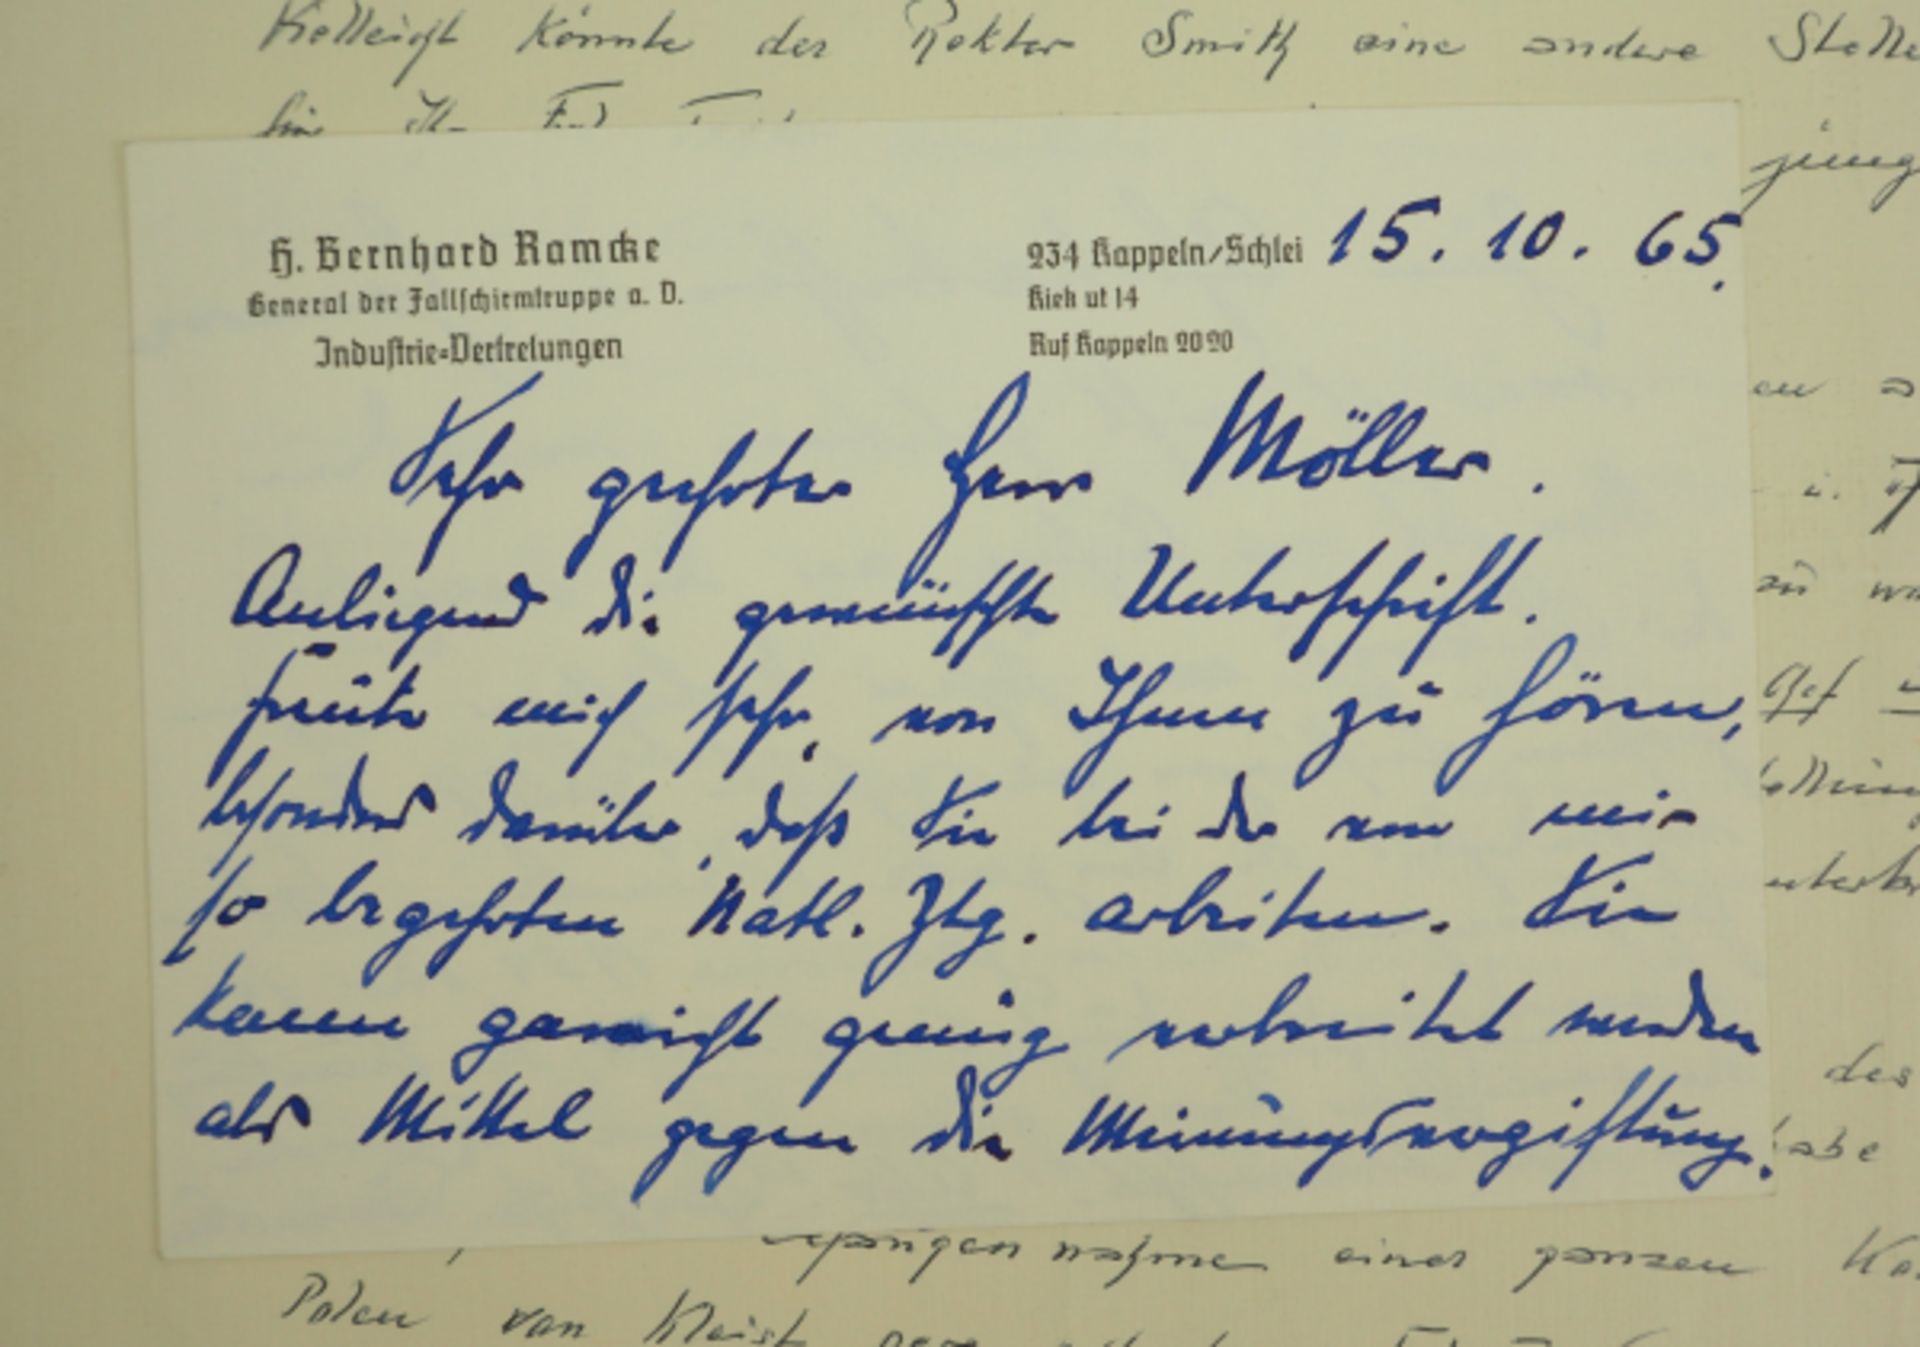 Vielleicht könnte der Rektor Smith eine andere Stelle
jung
H. Bernhard Ramcke
General der Fallschirmtruppe a. D.
Industrie-Vertretungen
234 Kappeln/Schlei 15. 10. 65.
Kiek ut 14
Ruf Kappeln 2020
Sehr geehrter Herr Möller.
Anliegend die gewünschte Unterschrift.
Freute mich sehr, von Ihnen zu hören,
besonders darüber, daß Sie bei der von mir
so begehrten Natl. Ztg. arbeiten. Sie
kann garnicht genug verbreitet werden
als Mittel gegen die Meinungsvergiftung.
des
nahme einer ganzen
Polen von Kleist